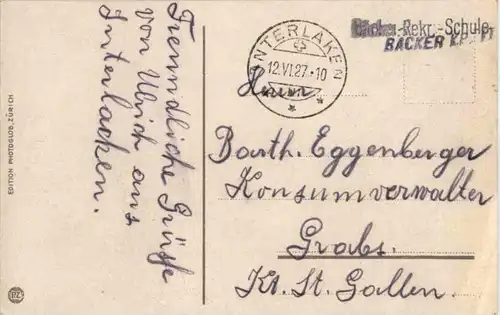 EDITION PHOTOGLOB, ZÜRICH
PZ
Freundliche Grüsse
von Ulrich aus
Interlacken.
INTERLAKEN
12.VI.27.-10
Bäcker-Rekr.-Schule
BÄCKER
Herrn
Barth. Eggenberger
Konsumverwalter
Grabs.
Kt. St. Gallen.